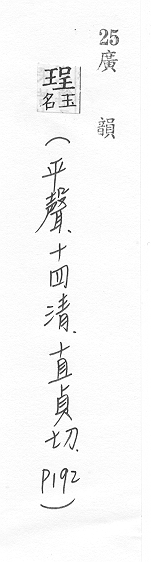 25廣韻
珵玉名
(平聲、十四清、直貞切、P192)